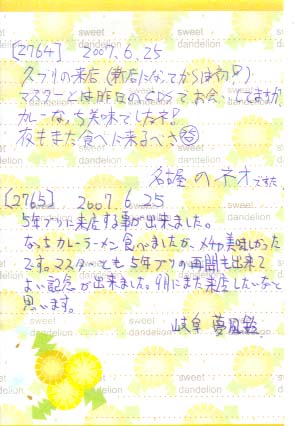 sweet dandelion
[2764] 2007.6.25
久ブリの来店(新店になってからは初!?)
マスターとは昨日のCDSでお会いしてますが
カレーなっち美味でしたネ!
夜もまた食べに来るべさ
名古屋のネオですた
[2765] 2007.6.25
5年ブリに来店する事が出来ました。
なっちカレーラーメン食べましたが、メチャ美味しかった
です。マスターとも5年ブリの再開も出来て
よい記念が出来ました。9月にまた来店したいなと
思います。
岐阜 夢風鈴
sweet dandelion